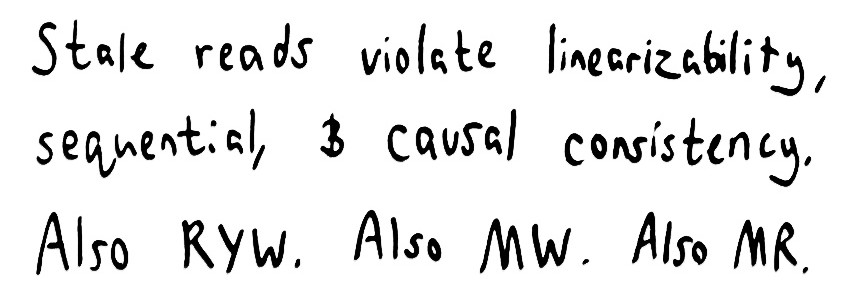 Stale reads violate linearizability,
sequential, & causal consistency.
Also RYW. Also MW. Also MR.